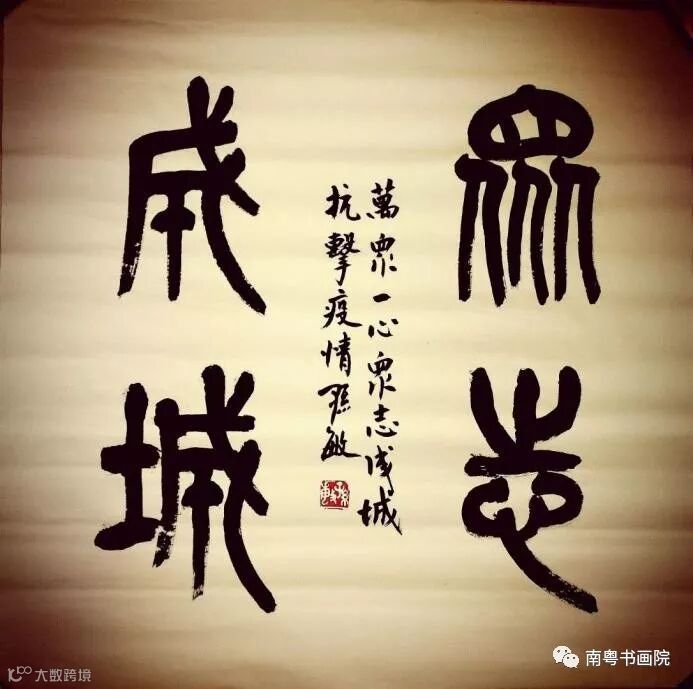 眾志
成城
萬眾一心眾志成城
抗擊疫情孫敏
南粤书画院
大数跨境